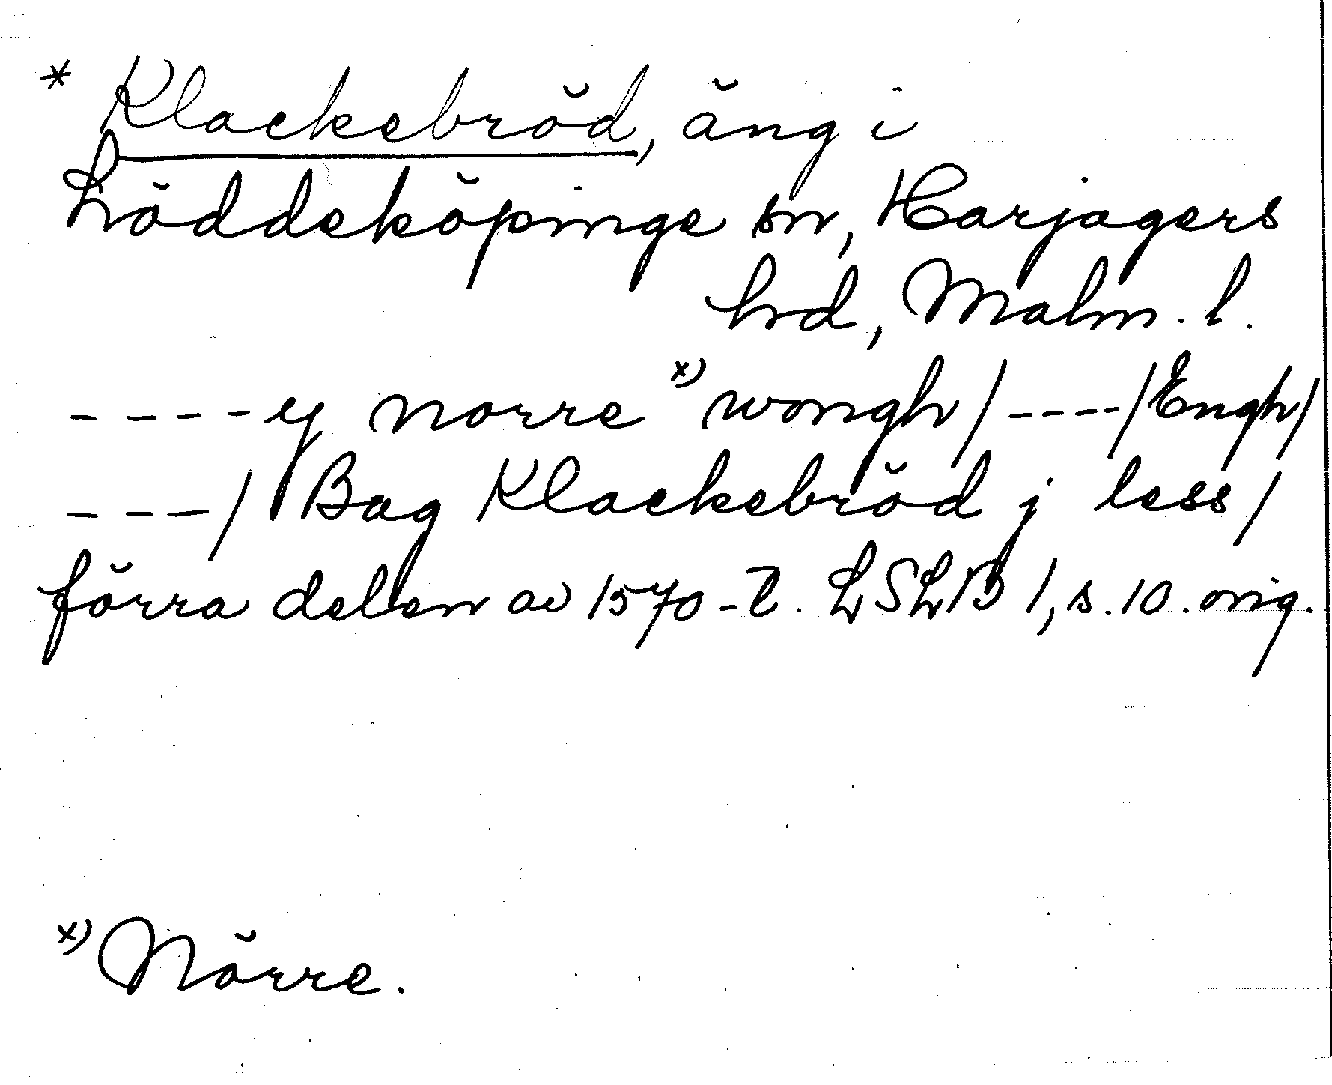 * Klackebröd, äng i
Löddeköpinge sn, Harjagers
hd, Malm. l.
- - - - y norre x) wongh / - - - - / Engh /
- - - / Bag Klackebröd j less /
förra delen av 1570-t. LSLB 1, s. 10. orig.
x) Nörre.